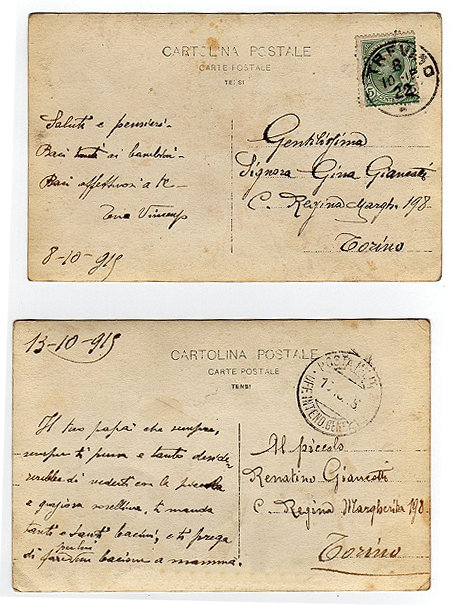 CARTOLINA POSTALE
CARTE POSTALE
TENSI
TREVISO
8
10
22
Saluti e pensieri.
Baci tanti ai bambini.
Baci affettuosi a te
Tuo Vincenzo
8-10-915
Gentilissima
Signora Gina Giancotti
C. Regina Margh. 198
Torino
13-10-915
CARTOLINA POSTALE
CARTE POSTALE
TENSI
POSTA MILIT
UFF. INTEND. GENER
Il tuo papà che sempre,
sempre ti pensa e tanto deside-
rerebbe di vederti con la piccola
e graziosa sorellina, ti manda
tanti e tanti bacini, e ti prega
di bacione a mamma.
Al piccolo
Renatino Giancotti
C. Regina Margherita 198.
Torino